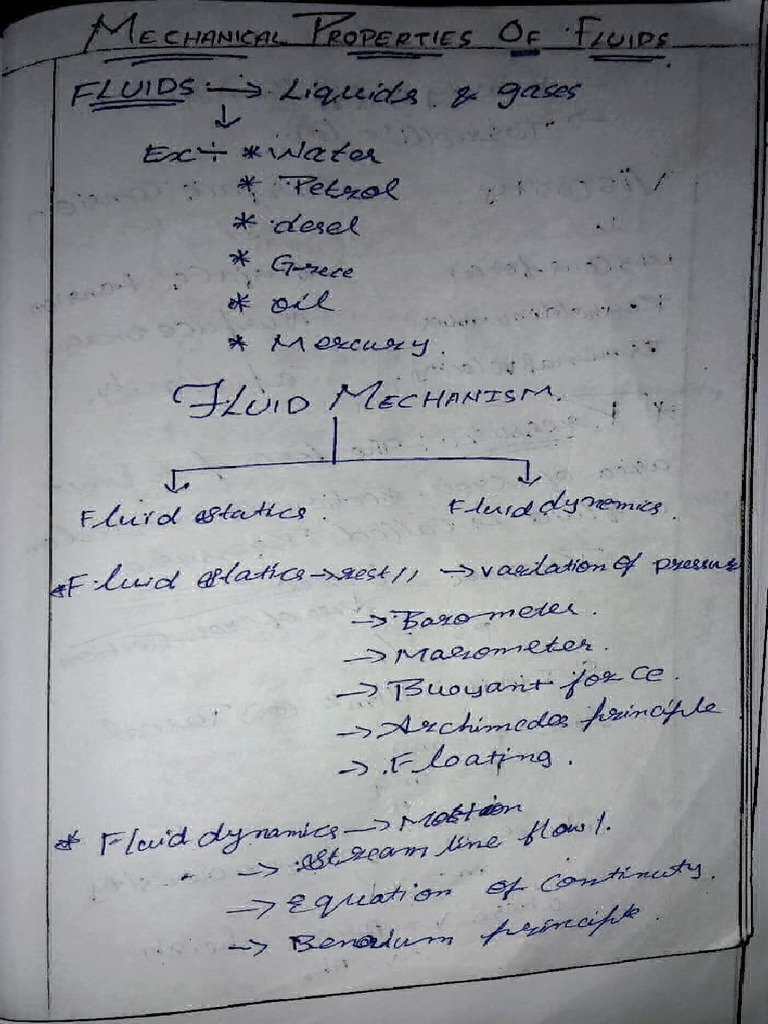 MECHANICAL PROPERTIES OF FLUIDS.
FLUIDS → Liquids & gases
↓
Ex÷ * Water
* Petrol
* desel
* Grece
* oil
* Mercury.
FLUID MECHANISM.
Fluid statics. Fluid dynamics.
* Fluid statics → rest // → variation of pressure
→ Barometer.
→ Manometer.
→ Buoyant force.
→ Archimedes principle
→ Floating.
* Fluid dynamics → Motion
→ stream line flow /.
→ Equation of continuty.
→ principle.